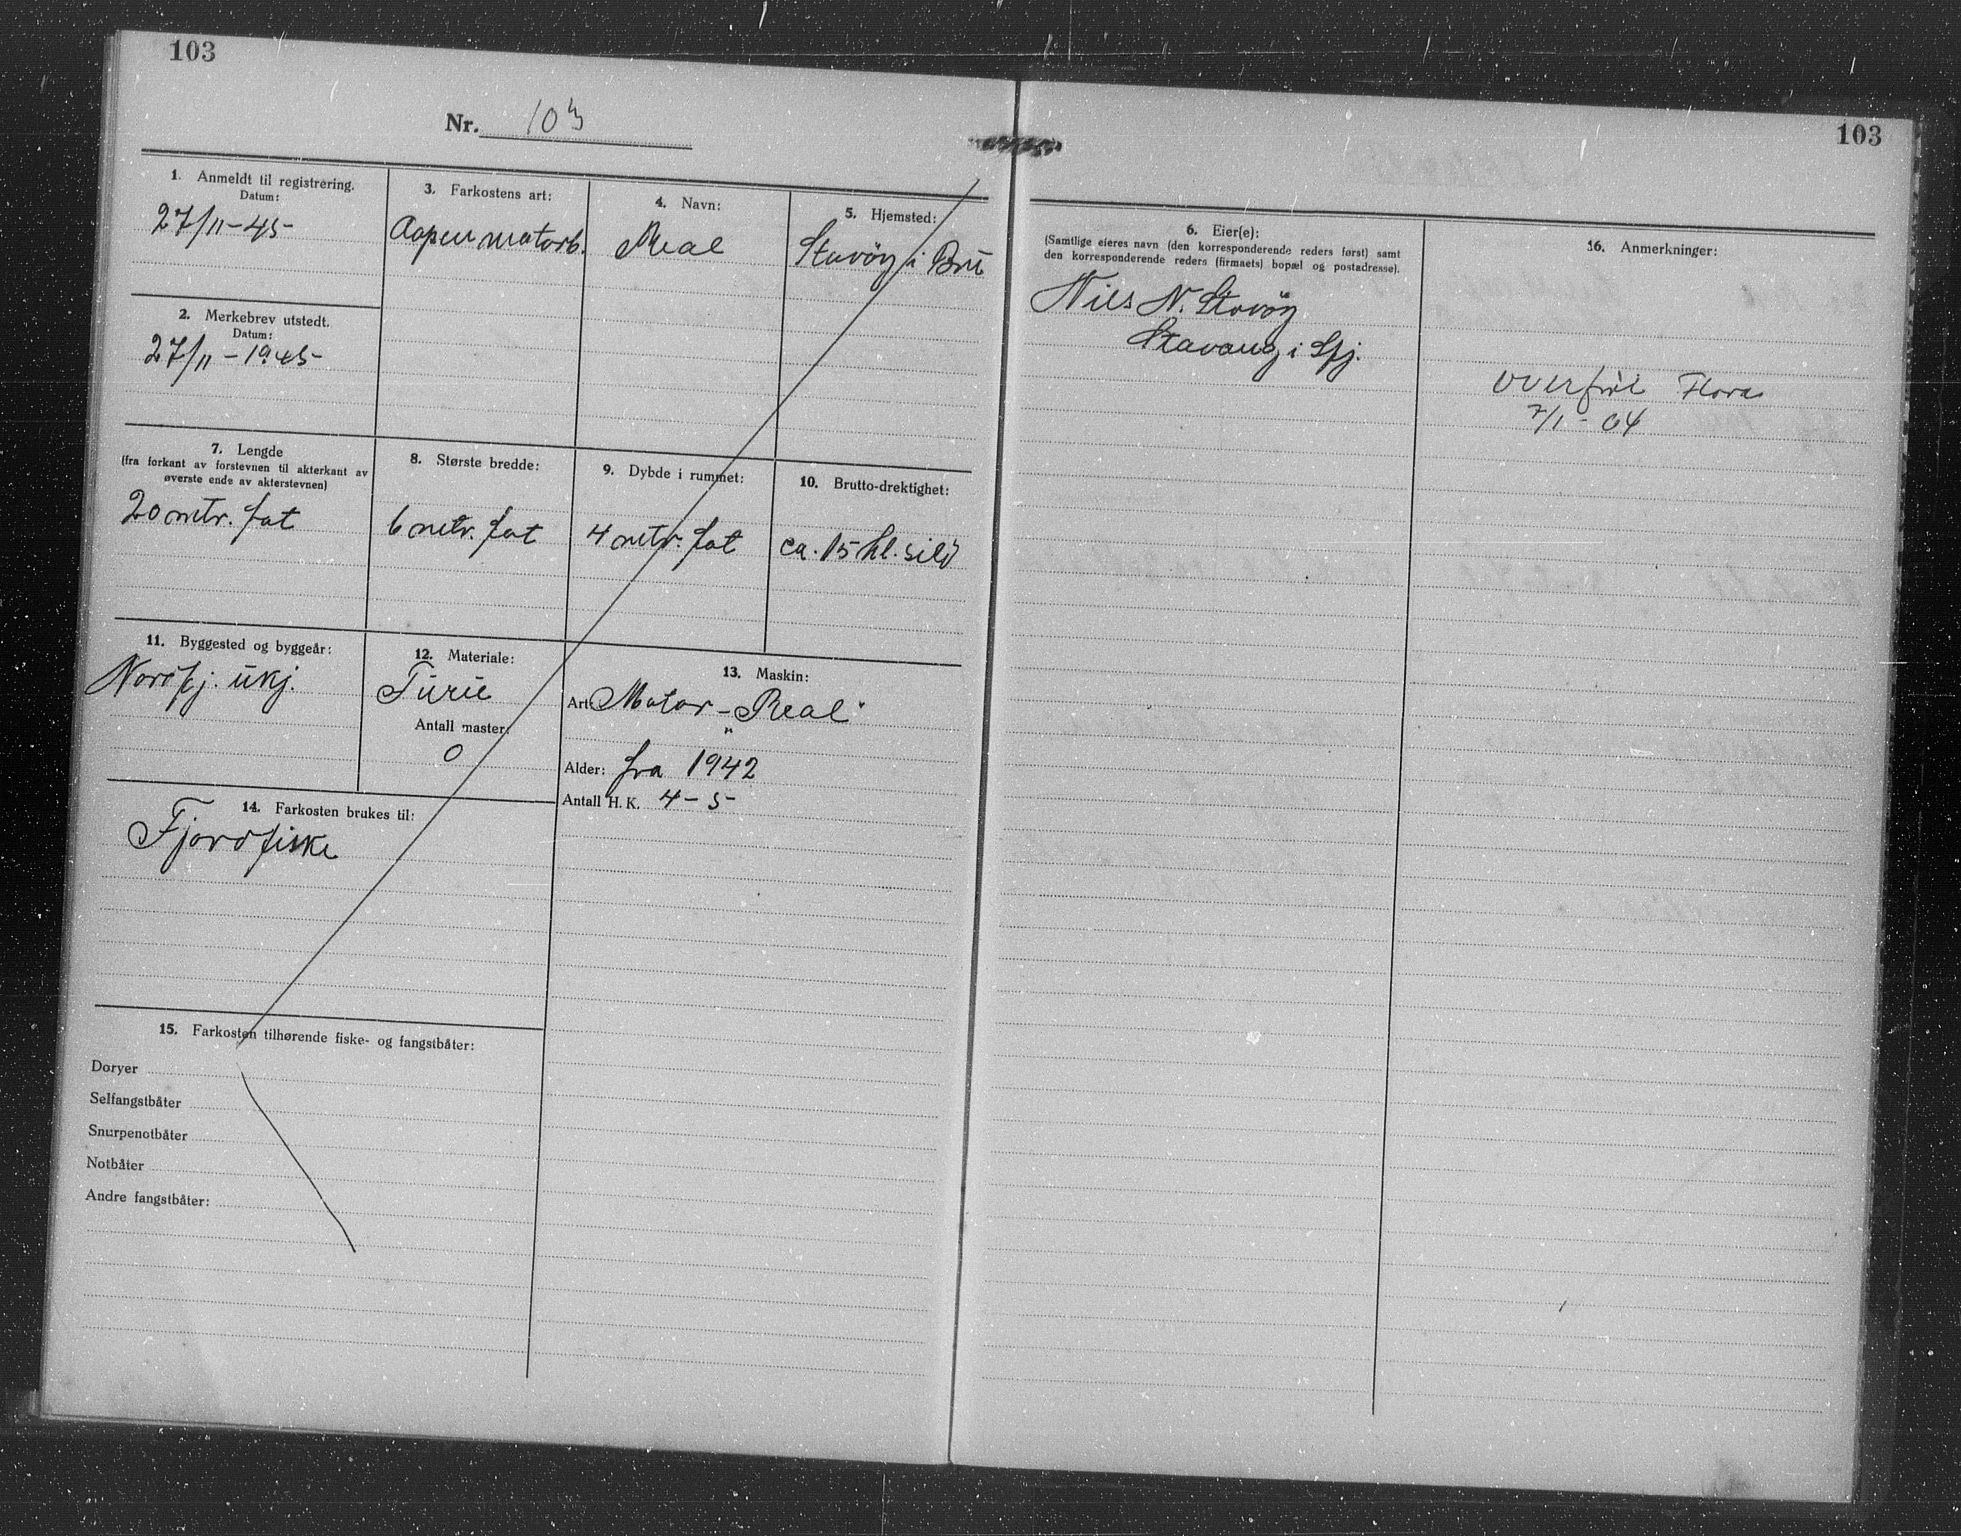 103
Nr. 103
1. Anmeldt til registrering.
Datum:
27/11-45-
2. Merkebrev utstedt.
Datum:
27/11-1945-
3. Farkostens art:
Aapen motorb.
4. Navn:
Real
5. Hjemsted:
Stavöy i Brü
7. Lengde
(fra forkant av forstevnen til akterkant av
øverste ende av akterstevnen)
20 metr. fot
8. Største bredde:
6 metr. fot
9. Dybde i rummet:
4 metr. fot
10. Brutto-drektighet:
ca. 15 hl. sild
11. Byggested og byggeår:
Nordfj. ükj.
12. Materiale:
Fürü
Antall master:
0
13. Maskin:
Art: Motor - „Real"
Alder: fra 1942
Antall H. K. 4-5-
14. Farkosten brukes til:
Fjordfiske
15. Farkosten tilhørende fiske- og fangstbåter:
Doryer
Selfangstbåter
Snurpenotbåter
Notbåter
Andre fangstbåter:
103
6. Eier(e):
(Samtlige eieres navn (den korresponderende reders først) samt
den korresponderende reders (firmaets) bopæl og postadresse).
Nils N. Stavöy
Stavang i Sfj.
16. Anmerkninger:
overført Flora
7/1-64